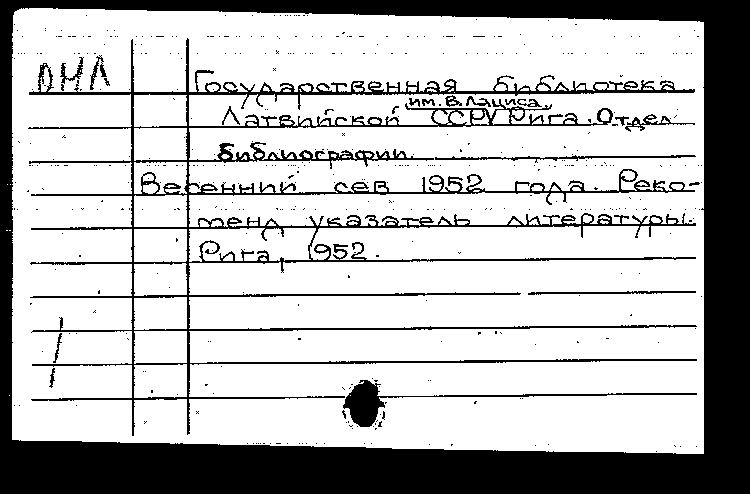 ДНЛ Государственная библиотека
им. В. Лациса
Латвийской ССР, Рига. Отдел
библиографии.
Весенний сев 1952 года. Реко-
менд указатель литературы.
Рига, 1952.